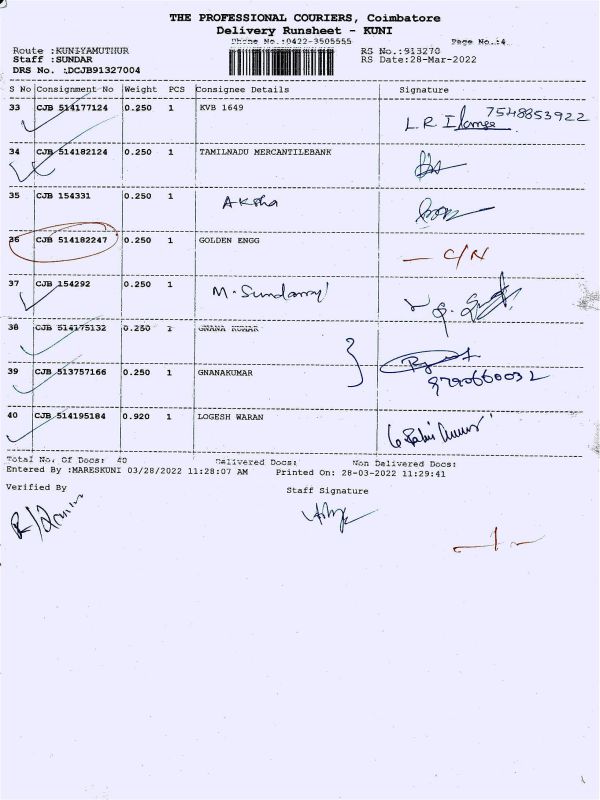 THE PROFESSIONAL COURIERS, Coimbatore
Delivery Runsheet - KUNI
Phone No.:0422-3505555 Page No.:4
Route :KUNIYAMUTHUR RS No.:913270
Staff :SUNDAR RS Date:28-Mar-2022
DRS No. :DCJB91327004
S No Consignment No Weight PCS Consignee Details Signature
33 CJB 514177124 0.250 1 KVB 1649
7548853922
L. R
34 CJB 514182124 0.250 1 TAMILNADU MERCANTILEBANK
35 CJB 154331 0.250 1
36 CJB 514182247 0.250 1 GOLDEN ENGG
— C/N
37 CJB 154292 0.250 1 M. Sundarraj
38 CJB 514175132 0.250 1 GNANA KUMAR
39 CJB 513757166 0.250 1 GNANAKUMAR
9790660032
40 CJB 514195184 0.920 1 LOGESH WARAN
Total No. Of Docs: 40 Delivered Docs: Non Delivered Docs:
Entered By :MARESKUNI 03/28/2022 11:28:07 AM Printed On: 28-03-2022 11:29:41
Verified By Staff Signature
— 1 —